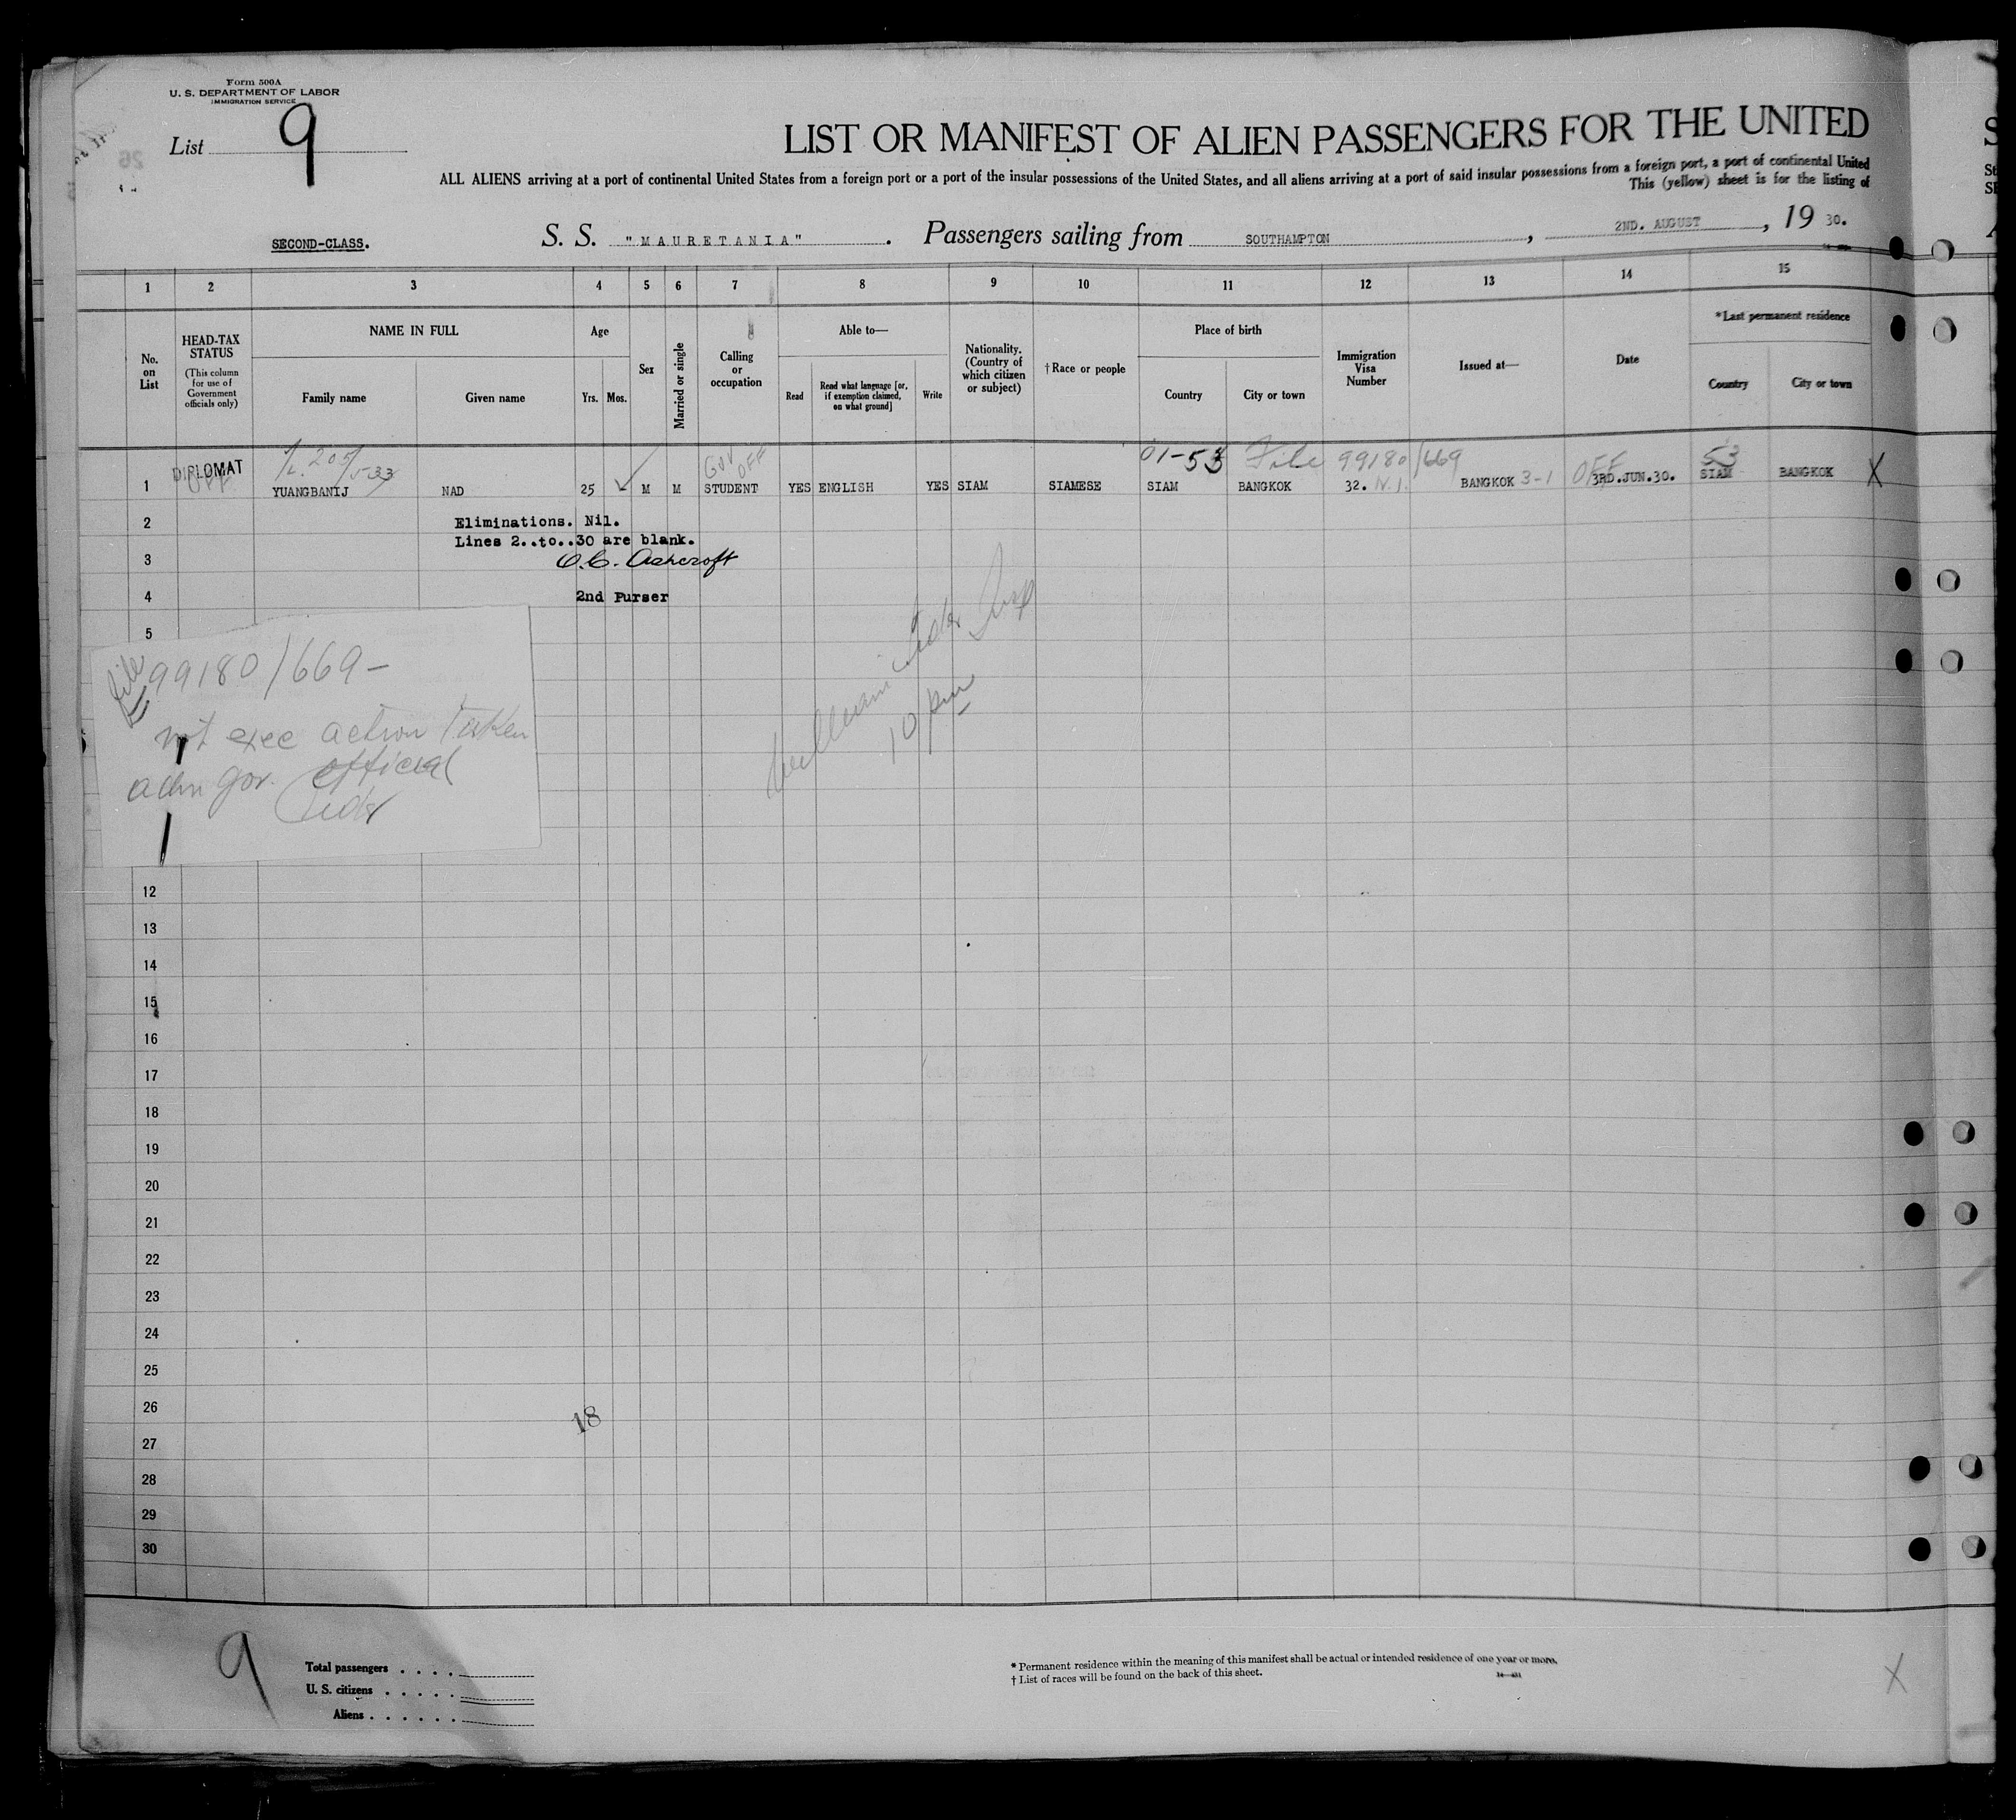 Form 500A
U. S. DEPARTMENT OF LABOR
IMMIGRATION SERVICE
List 9
LIST OR MANIFEST OF ALIEN PASSENGERS FOR THE UNITED
ALL ALIENS arriving at a port of continental United States from a foreign port or a port of the insular possessions of the United States, and all aliens arriving at a port of said insular possessions from a foreign port, a port of continental United
This (yellow) sheet is for the listing of
SECOND-CLASS. S. S. "MAURETANIA". Passengers sailing from SOUTHAMPTON, 2ND. AUGUST, 19 30.
1 2 3 4 5 6 7 8 9 10 11 12 13 14 15
No. on List
HEAD-TAX STATUS (This column for use of Government officials only)
NAME IN FULL
Family name Given name
Age
Yrs. Mos.
Sex
Married or single
Calling or occupation
Able to—
Read
Read what language [or, if exemption claimed, on what ground]
Write
Nationality. (Country of which citizen or subject)
† Race or people
Place of birth
Country City or town
Immigration Visa Number
Issued at—
Date
*Last permanent residence
Country City or town
DIPLOMAT OFF 205/533 GOV OFF 01-53 File 99180/669 OFF 53
1 YUANGBANIJ NAD 25 M M STUDENT YES ENGLISH YES SIAM SIAMESE SIAM BANGKOK 32. N.I. BANGKOK 3-1 3RD.JUN.30. SIAM BANGKOK X
2 Eliminations. Nil.
Lines 2..to..30 are blank.
3 O.C. Ashcroft
4 2nd Purser
5
file 99180/669-
not exec action taken
adm gov. official
Insp
10 pm
12
13
14
15
16
17
18
19
20
21
22
23
24
25
26
18
27
28
29
30
9
Total passengers . . . .
U. S. citizens . . . . .
Aliens . . . . . .
* Permanent residence within the meaning of this manifest shall be actual or intended residence of one year or more.
† List of races will be found on the back of this sheet.
X